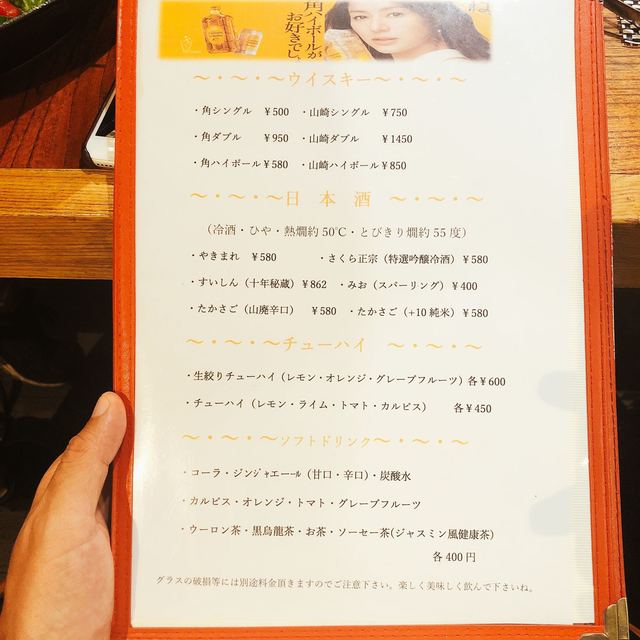 角ハイボールが
お好きでしょ
ね
～・～・～ウイスキー～・～・～
・角シングル ￥500 ・山崎シングル ￥750
・角ダブル ￥950 ・山崎ダブル ￥1450
・角ハイボール￥580 ・山崎ハイボール￥850
～・～・～日 本 酒 ～・～・～
（冷酒・ひや・熱燗約50℃・とびきり燗約55度）
・やきまれ ￥580 ・さくら正宗（特選吟醸冷酒）￥580
・すいしん（十年秘蔵）￥862 ・みお（スパーリング）￥400
・たかさご（山廃辛口） ￥580 ・たかさご（+10純米）￥580
～・～・～チューハイ ～・～・～
・生絞りチューハイ（レモン・オレンジ・グレープフルーツ）各￥600
・チューハイ（レモン・ライム・トマト・カルピス） 各￥450
～・～・～ソフトドリンク～・～・～
・コーラ・ジンジャエール（甘口・辛口）・炭酸水
・カルピス・オレンジ・トマト・グレープフルーツ
・ウーロン茶・黒烏龍茶・お茶・ソーセー茶(ジャスミン風健康茶)
各400円
グラスの破損等には別途料金頂きますのでご注意下さい。楽しく美味しく飲んで下さいね。